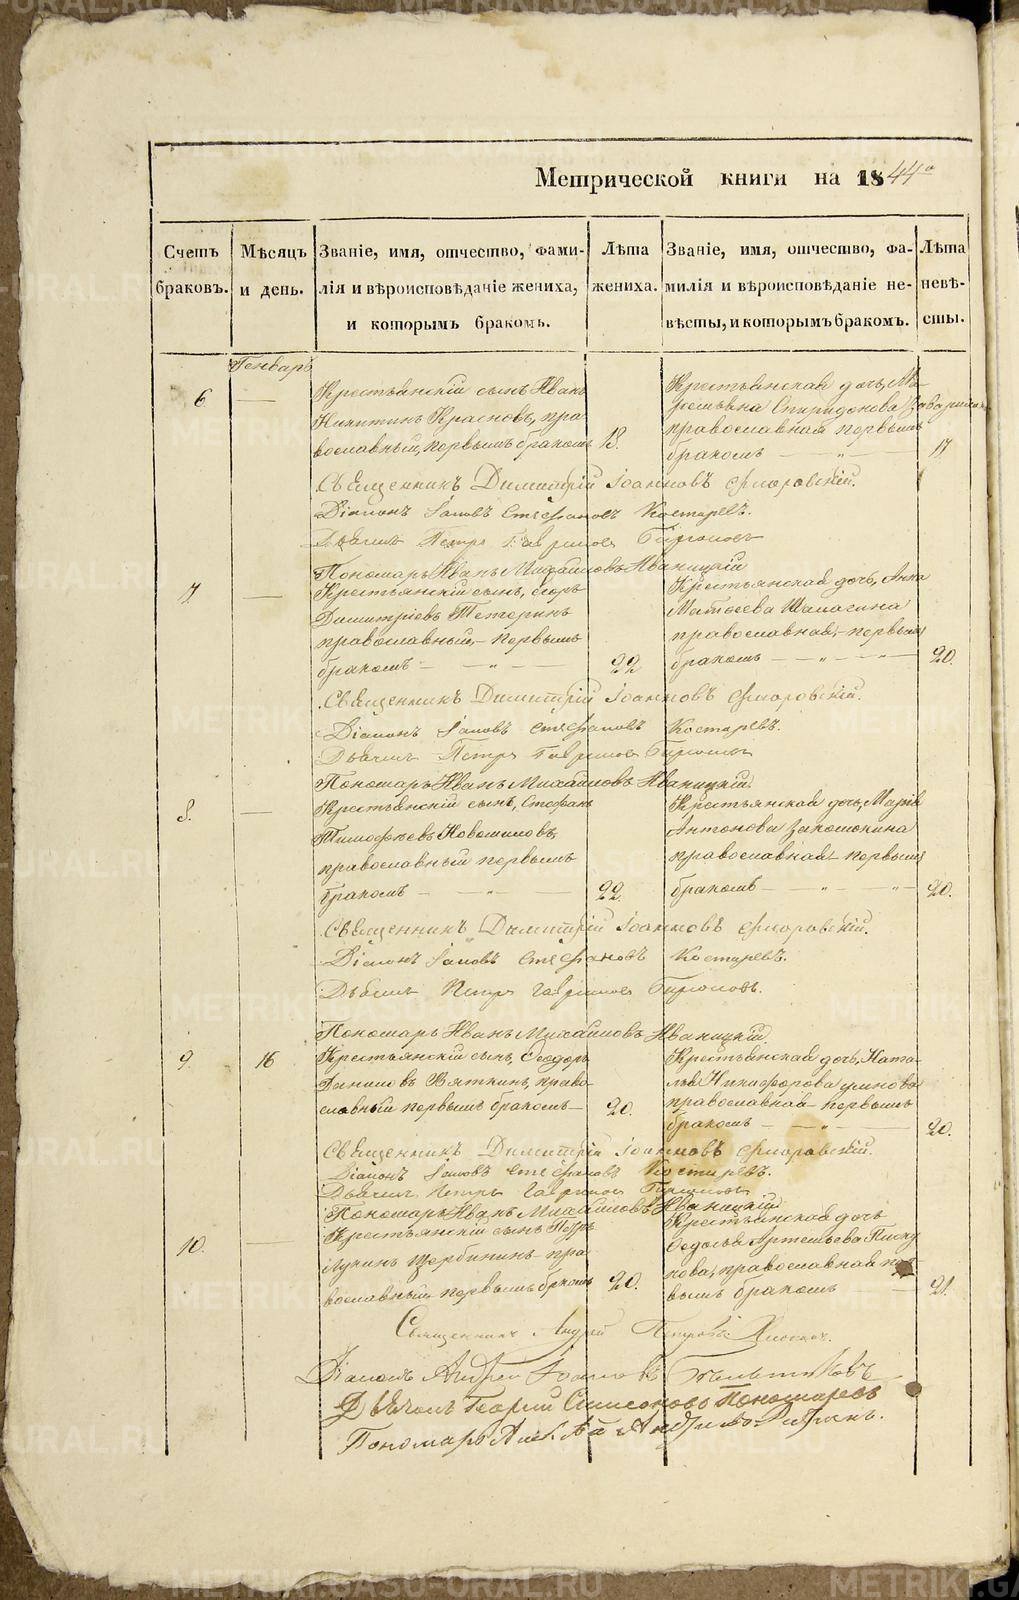 Метрической книги на 1844 о
Счетъ браковъ.
Мѣсяцъ и день.
Званіе, имя, отчество, фами-
лія и вѣроисповѣданіе жениха,
и которымъ бракомъ.
Лѣта жениха.
Званіе, имя, отчество, фа-
милія и вѣроисповѣданіе не-
вѣсты, и которымъ бракомъ.
Лѣта невѣ-
сты.
Генварь
6.
Крестьянскій сынъ Иванъ
Никитинъ Красновъ, пра-
вославный, первымъ бракомъ
18.
Крестьянская дочь, Ма-
Спиридонова
православная первымъ
бракомъ — „ —
17
Священникъ Димитрій Іоанновъ Флоровскій.
Діаконъ Іаковъ Стефановъ Костаревъ.
Дьячекъ Петръ Гавриловъ
Пономарь Иванъ Михайловъ Иваницкій
7.
Крестьянскій сынъ, Егоръ
Димитріевъ Тетеринъ
православный, – первымъ
бракомъ — „ —
22
Крестьянская дочь, Анна
Матвеева Шалагина
православная, – первымъ
бракомъ — „ — „ —
20.
Священникъ Димитрій Іоанновъ Флоровскій.
Діаконъ Іаковъ Стефановъ Костаревъ.
Дьячекъ Петръ Гавриловъ
Пономарь Иванъ Михайловъ Иваницкій
8.
Крестьянскій сынъ, Стефанъ
Тимофѣевъ Новошиловъ,
православный первымъ
бракомъ — „ —
22.
Крестьянская дочь, Марія
Антонова
православная – первымъ
бракомъ — „ — „ —
20.
Священникъ Димитрій Іоанновъ Флоровскій.
Діаконъ Іаковъ Стефановъ Костаревъ.
Дьячекъ Петръ Гавриловъ
Пономарь Иванъ Михайловъ Иваницкій
9.
16
Крестьянскій сынъ, Ѳеодоръ
Даниловъ Вяткинъ, право-
славный первымъ бракомъ –
20.
Крестьянская дочь, Ната-
лья Никифорова
православная – первымъ
бракомъ — „ —
20.
Священникъ Димитрій Іоанновъ Флоровскій.
Діаконъ Іаковъ Стефановъ Костаревъ.
Дьячекъ Петръ Гавриловъ
Пономарь Иванъ Михайловъ Иваницкій
10.
Крестьянскій сынъ Петръ
Лукинъ Щербининъ – пра-
вославный первымъ бракомъ
20.
Крестьянская дочь
Федосья Артемьева Писку-
нова, православная пер-
вымъ бракомъ —
21.
Священникъ Андрей Петровъ
Діаконъ Андрей Іоанновъ
Дьячекъ Георгій Симеоновъ Пономаревъ
Пономарь